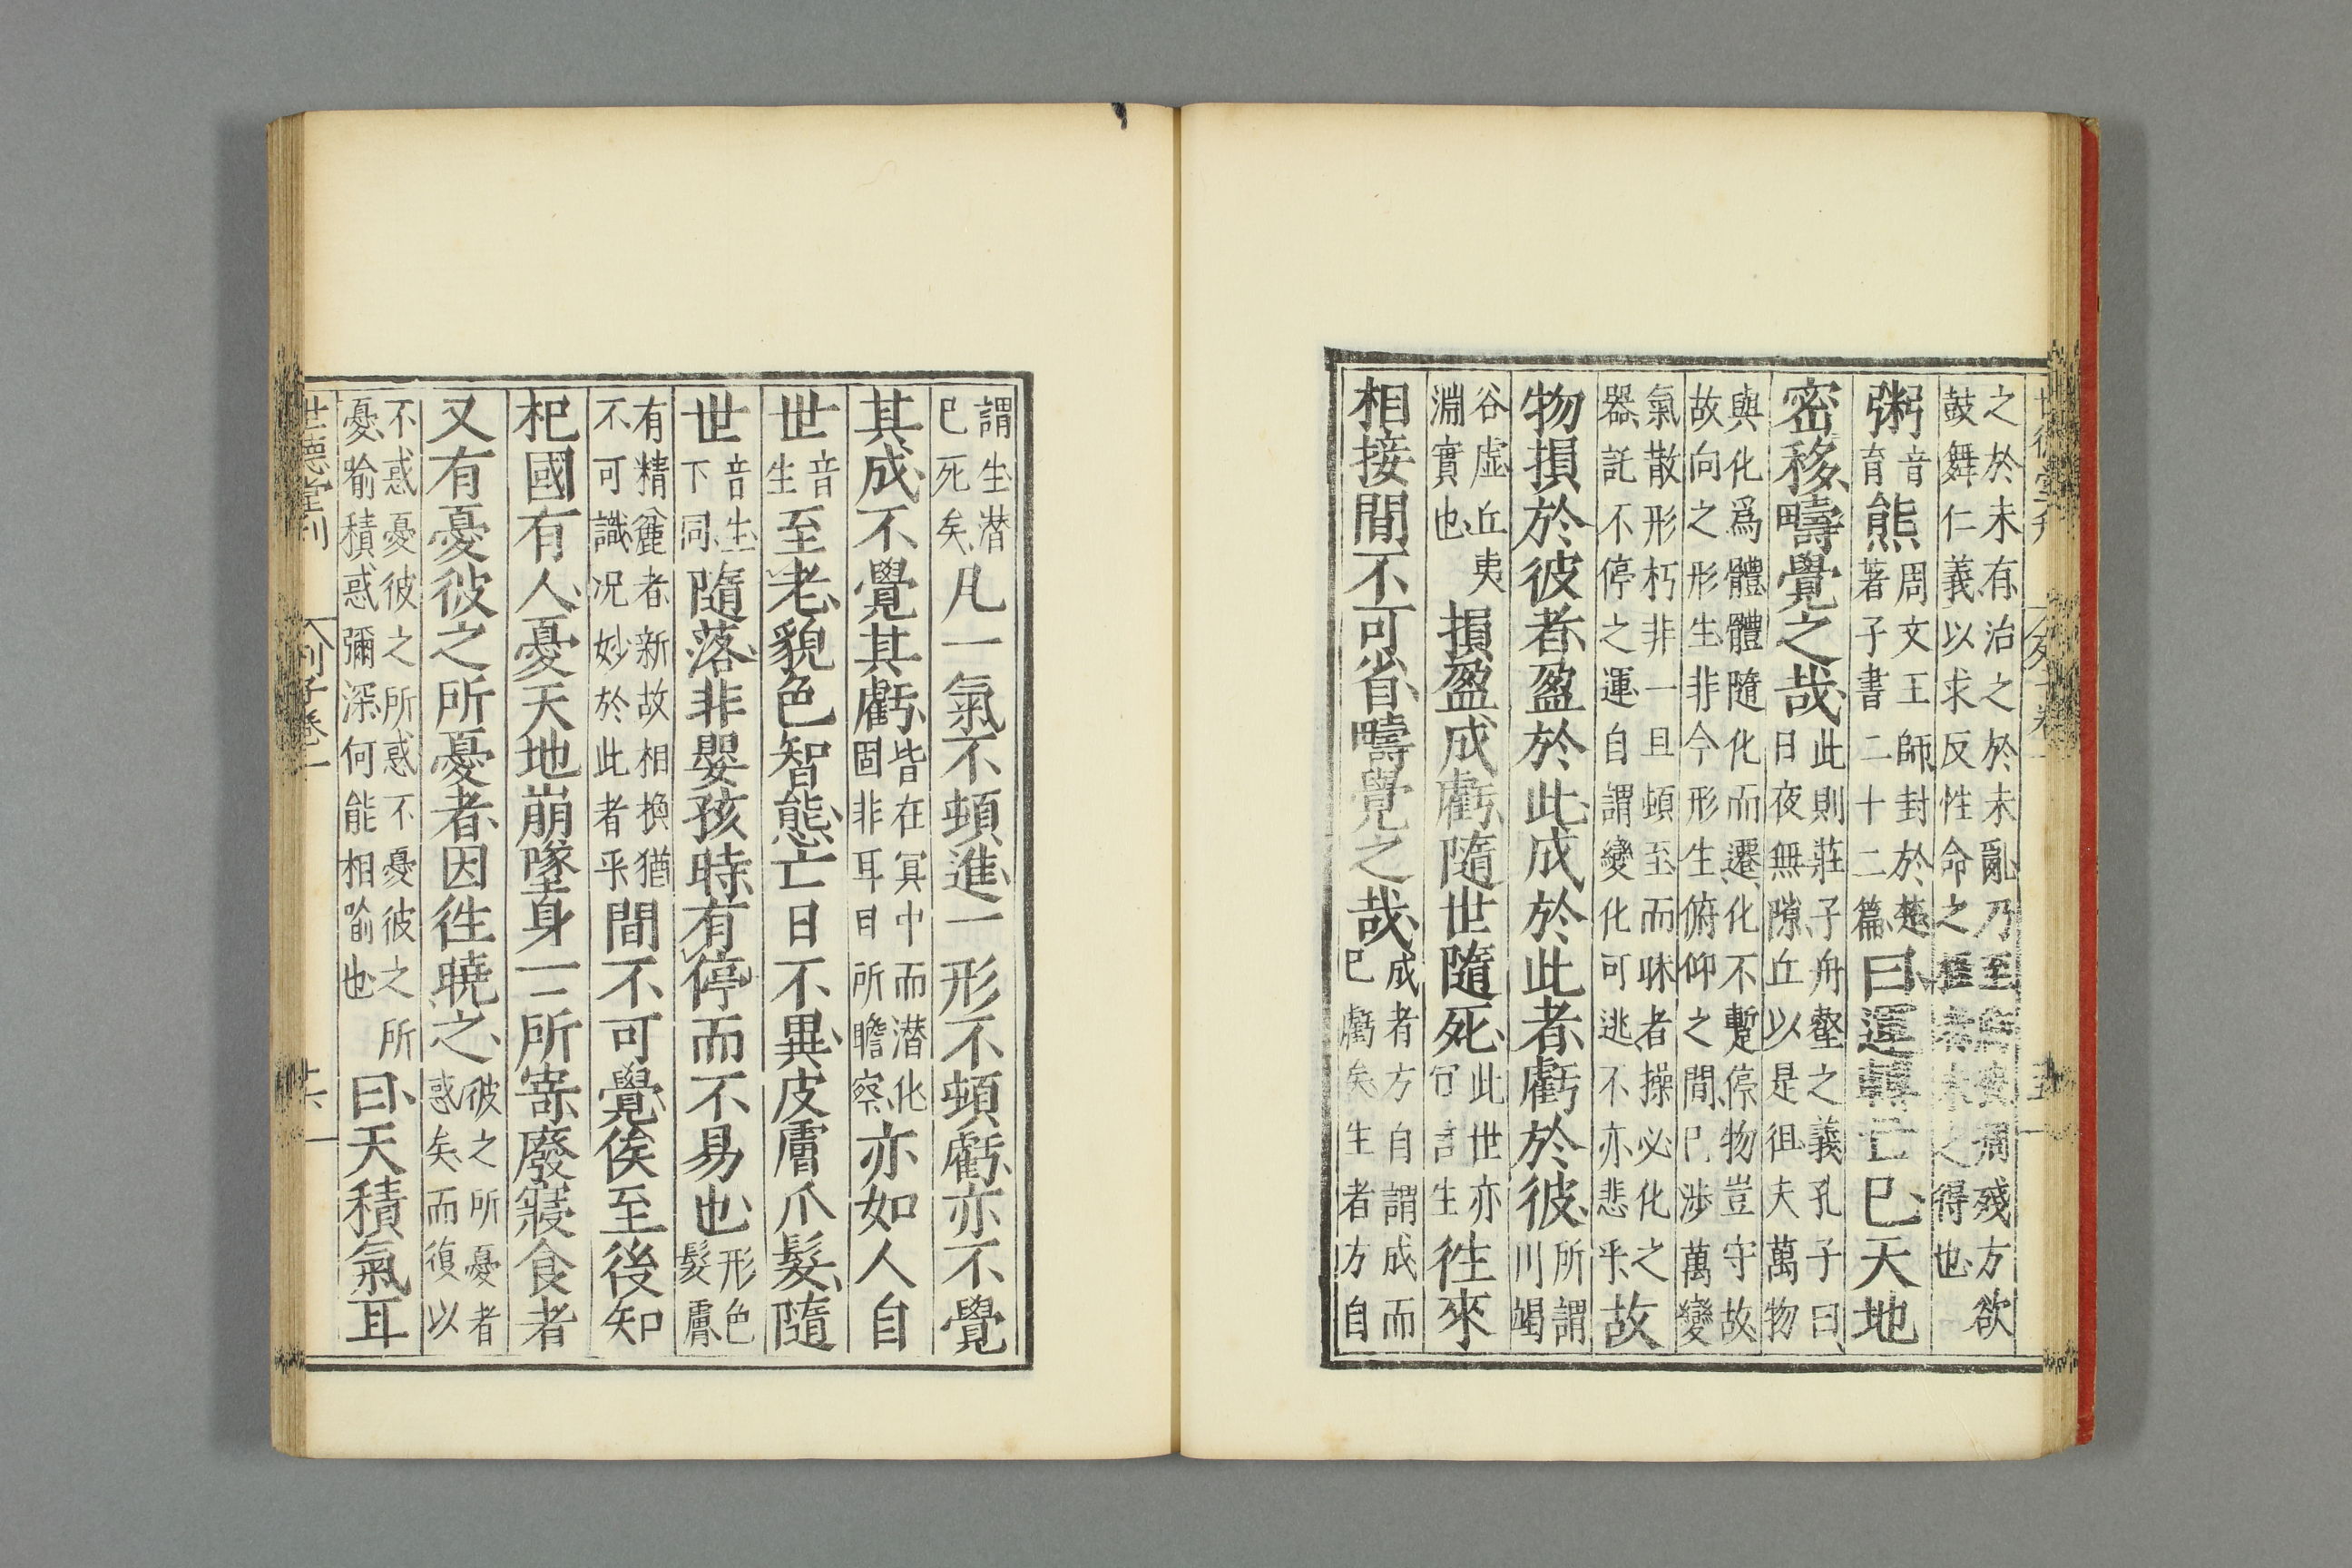 之於未有治之於未亂乃至虧喪凋殘方欲
鼓舞仁義以求反性命之極者未之得也
粥音育熊周文王師封於楚著子書二十二篇曰運轉亡已天地
密移疇覺之哉此則莊子舟壑之義孔子曰日夜無隙丘以是徂夫萬物
與化爲體體隨化而遷化不蹔停物豈守故
故向之形生非今形生俯仰之間已涉萬變
氣散形朽非一旦頓至而昧者操必化之器託不停之運自謂變化可逃不亦悲乎故
物損於彼者盈於此成於此者虧於彼所謂川竭
谷虛丘夷淵實也損盈成虧隨世隨死此世亦冝言生往來
相接間不可省疇覺之哉成者方自謂成而已虧矣生者方自
謂生潜已死矣凡一氣不頓進一形不頓虧亦不覺
其成不覺其虧皆在冥中而潜化固非耳目所瞻察亦如人自
世音生至老貌色智態亡日不異皮膚爪髮隨
世音生下同隨落非嬰孩時有停而不易也形色髮膚
有精麄者新故相換猶不可識况妙於此者乎間不可覺俟至後知
杞國有人憂天地崩墜身亡所寄廢寢食者
又有憂彼之所憂者因徃曉之彼之所憂者惑矣而復以
不惑憂彼之所惑不憂彼之所憂喻積惑彌深何能相喻也曰天積氣耳
世德堂刊
列子卷一
十六